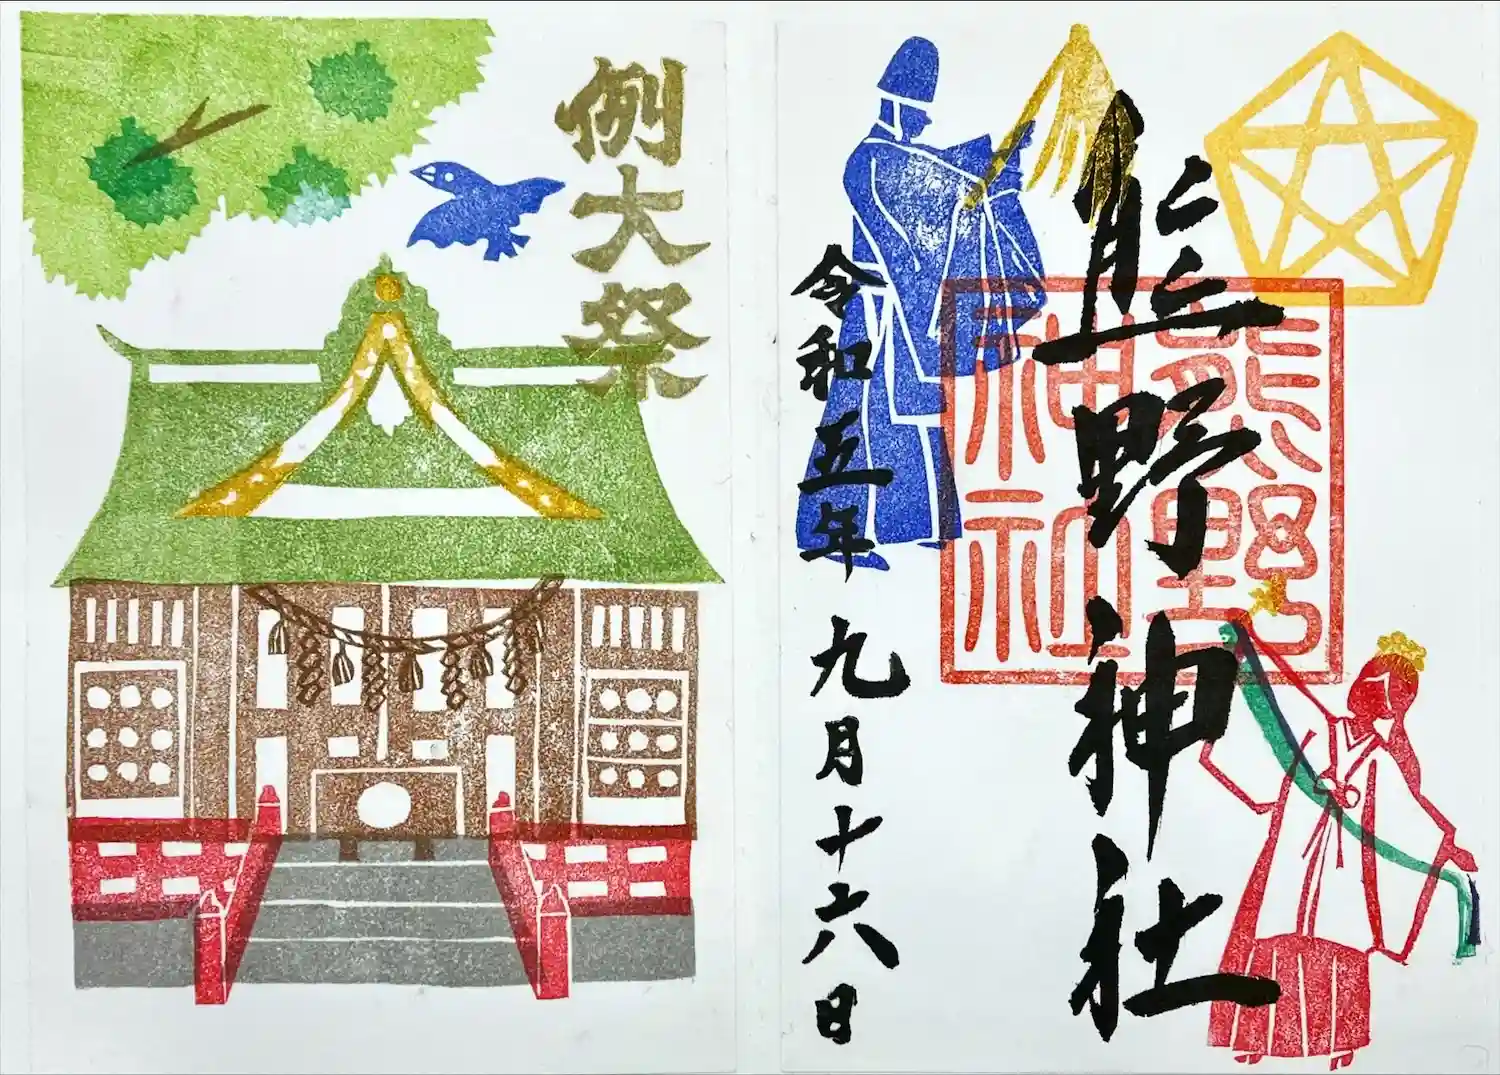 熊野神社
熊野
神社
令和五年九月十六日
例大祭